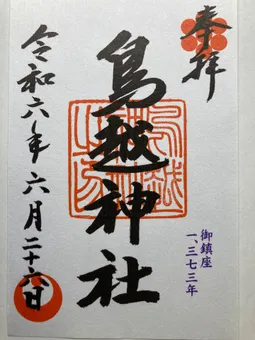 奉拝
鳥越神社
令和六年 六月二十六日
御鎮座
一、三七三年